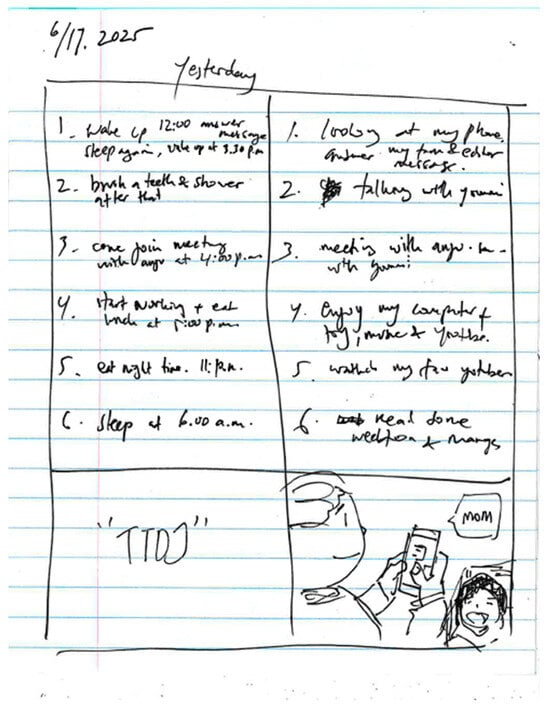 6/17. 2025
Yesterday
1. wake up 12:00 answer
message
sleep again, wake up at 3.30 p.m
2. brush a teeth & shower
after that
3. come join meeting
with at 4:00 p.m
4. start working + eat
lunch at 5:00 p.m.
5. eat night time. 11: p.m.
6. sleep at 6.00 a.m.
1. looking at my phone.
answer my &
message.
2. talking with
3. meeting with
with
4. enjoy my computer &
toy, &
5. my fav youtuber
6. read some
webtoon & manga
"TTDJ"
MOM